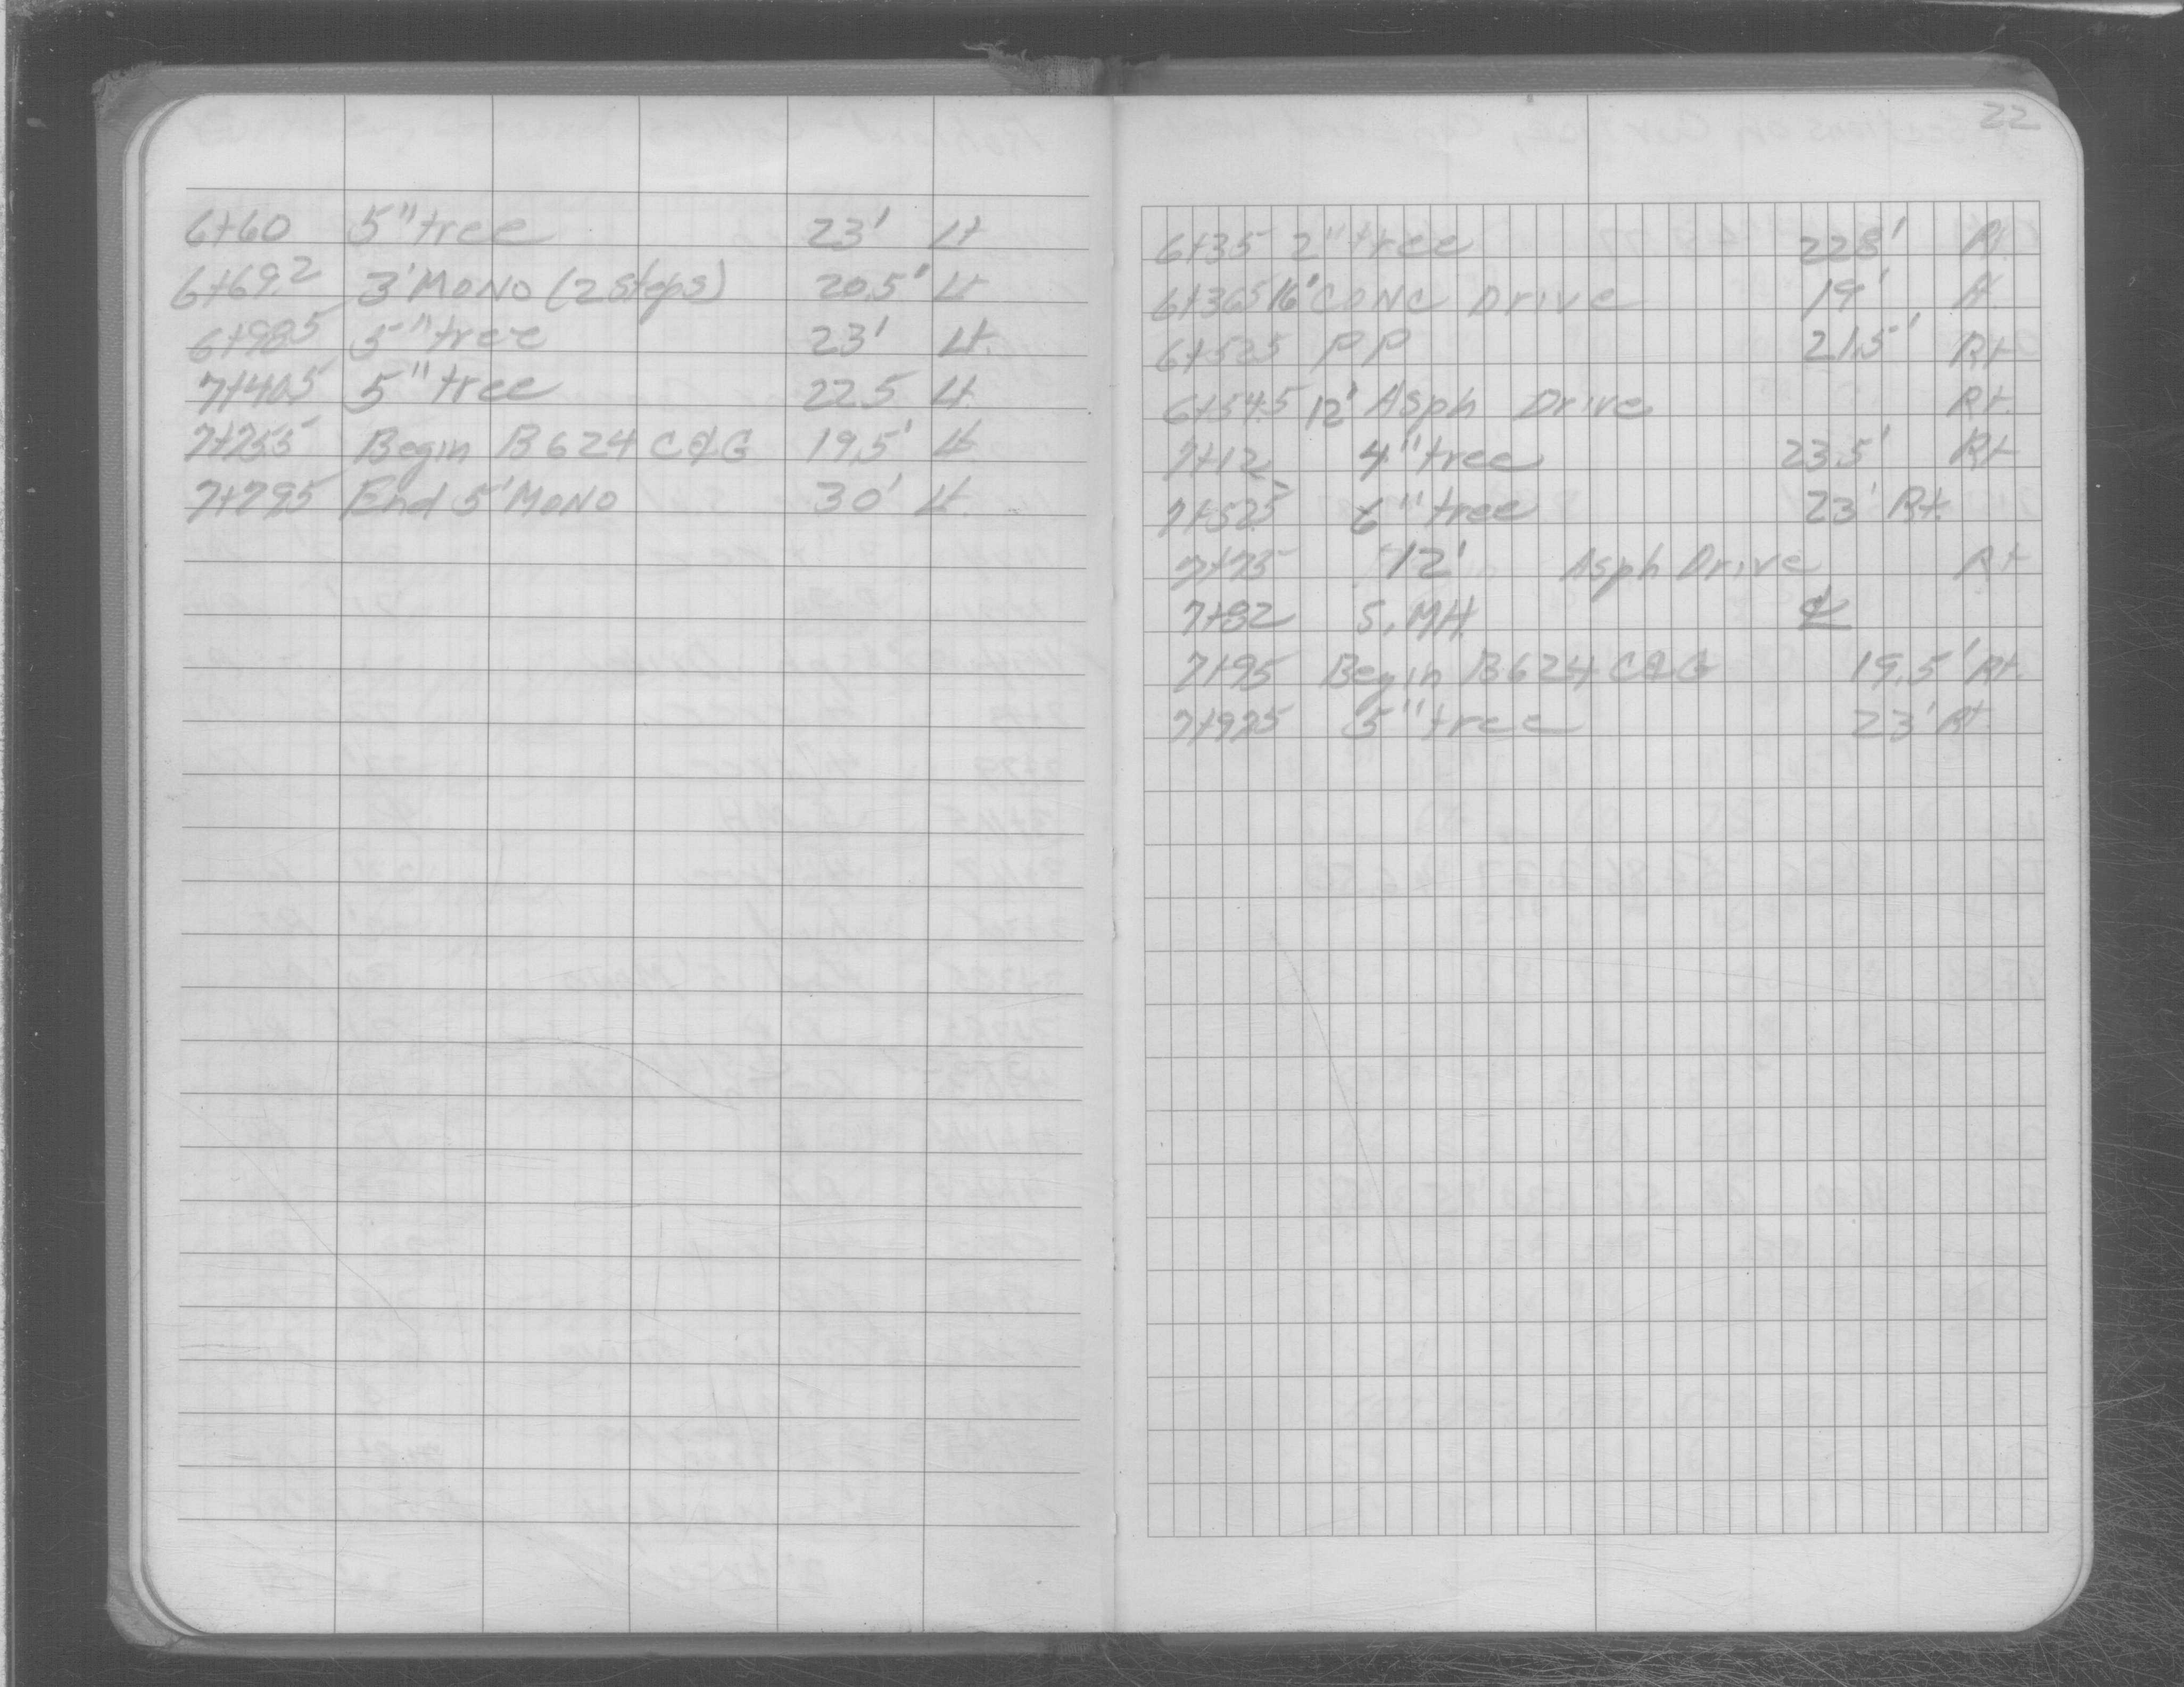 6+60 5" tree 23' Lt
6+69.2 3' MONO (2 steps) 20.5' Lt
6+98.5 5" tree 23' Lt.
7+40.5 5" tree 22.5 Lt.
7+75.5 Begin B624 C&G 19.5' Lt
7+79.5 End 5' MONO 30' Lt.
22
6+35 2" tree 22.8' Rt.
6+36.5 16' CONC Drive 19' Rt.
6+52.5 PP 21.5' Rt
6+54.5 12' Asph Drive Rt.
7+12 4" tree 23.5' Rt
7+52.5 6" tree 23' Rt.
7+75 12' Asph Drive Rt
7+82 S. MH ℄
7+95 Begin B624 C&G 19.5' Rt.
7+97.5 5" tree 23' Rt